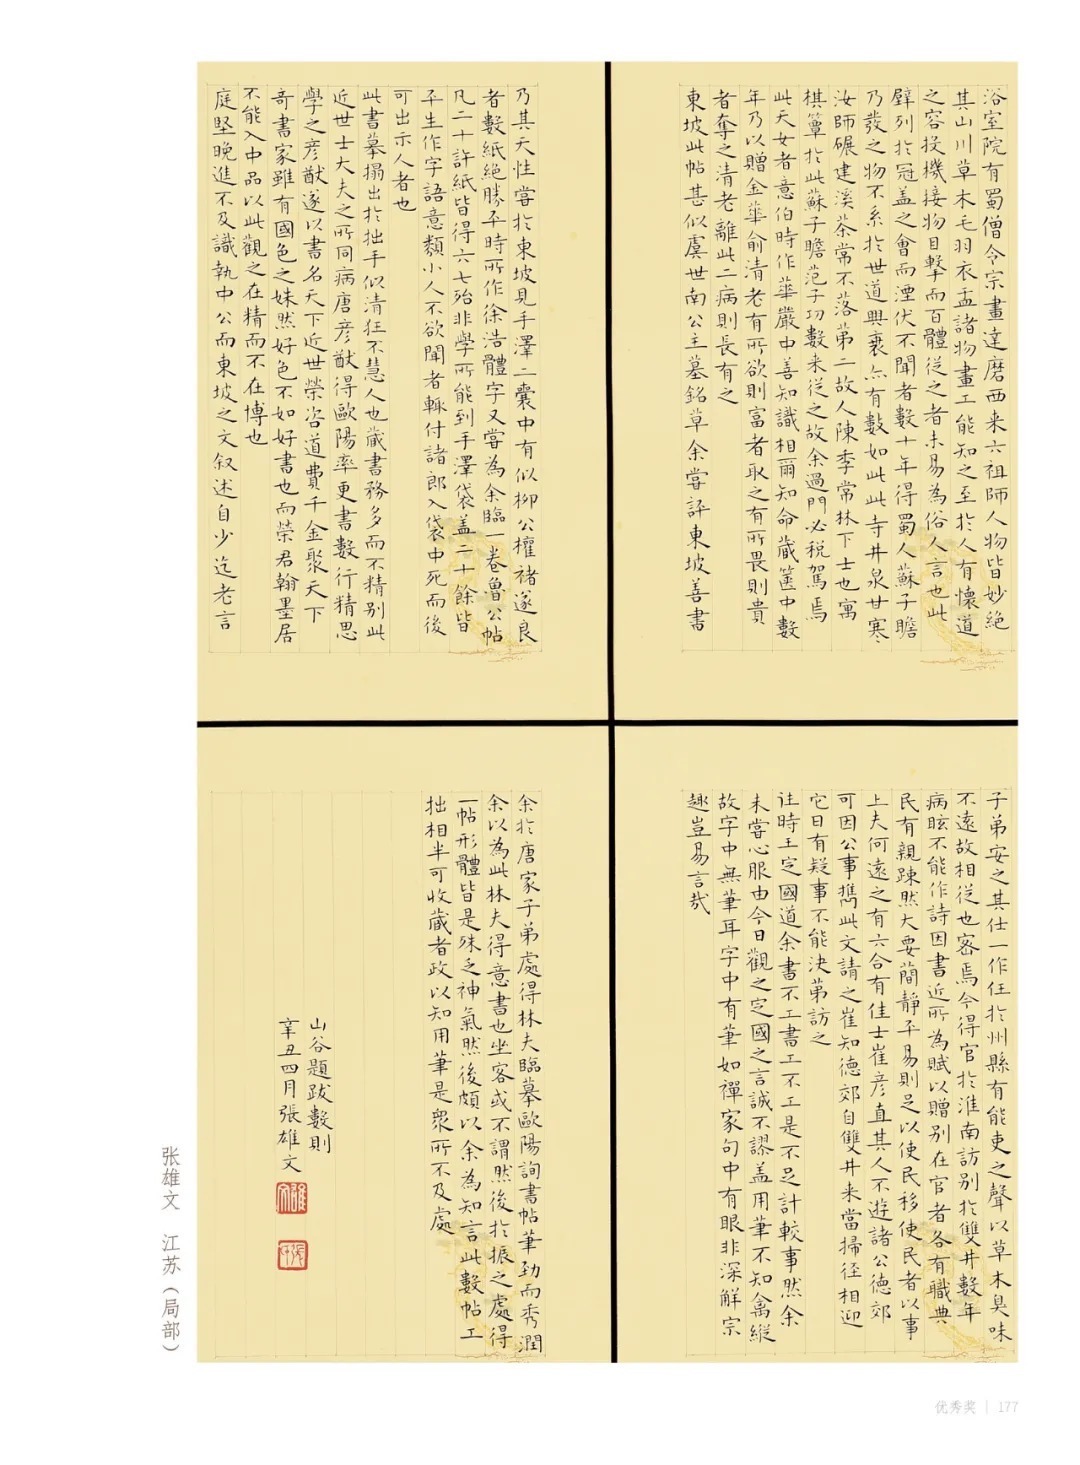 浴室院有蜀僧令宗畫達磨西来六祖師人物皆妙絶
其山川草木毛羽衣盂諸物畫工能知之至扵人有懷道
之容投機接物目擊而百體従之者未易為俗人言也此
壁列扵冠盖之會而湮伏不聞者數十年得蜀人蘇子瞻
乃發之物不系扵世道興衰亦有數如此此寺井泉甘寒
汝師碾建溪茶常不落第二故人陳季常林下士也寓
棋簟扵此蘇子瞻范子功數来従之故余過門必税駕焉
此天女者意伯時作華嚴中善知識相爾知命蔵篋中數
年乃以贈金華俞清老有所欲則富者取之有所畏則貴
者奪之清老離此二病則長有之
東坡此帖甚似虞世南公主墓銘草余嘗評東坡善書
乃其天性嘗扵東坡見手澤二囊中有似柳公權褚遂良
者數紙絶勝平時所作徐浩體字又嘗為余臨一卷魯公帖
凡二十許紙皆得六七殆非學所能到手澤袋盖二十餘皆
平生作字語意類小人不欲聞者輒付諸郎入袋中死而後
可出示人者也
此書摹搨出扵拙手似清狂不慧人也蔵書務多而不精别此
近世士大夫之所同病唐彦猷得歐陽率更書數行精思
學之彦猷遂以書名天下近世榮咨道費千金聚天下
奇書家雖有國色之姝然好色不如好書也而榮君翰墨居
不能入中品以此觀之在精而不在博也
庭堅晚進不及識執中公而東坡之文叙述自少迄老言
子弟安之其仕一作仕扵州縣有能吏之聲以草木臭味
不遠故相従也宻焉今得官扵淮南訪别扵雙井數年
病眩不能作詩因書近所為賦以贈别在官者各有職典
民有親踈然大要蕳静平易則足以使民移使民者以事
上夫何遠之有六合有佳士崔彦直其人不遊諸公德郊
可因公事擕此文請之崔知德郊自雙井来當掃径相迎
它日有疑事不能決第訪之
往時王定國道余書不工書工不工是不足計較事然余
未嘗心服由今日觀之定國之言誠不謬盖用筆不知禽縱
故字中無筆耳字中有筆如禪家句中有眼非深解宗
趣豈易言哉
余扵唐家子弟處得林夫臨摹歐陽詢書帖筆勁而秀潤
余以為此林夫得意書也坐客或不謂然後扵振之處得
一帖形體皆是殊乏神氣然後頗以余為知言此數帖工
拙相半可收蔵者政以知用筆是衆所不及處
山谷題跋數則
辛丑四月張雄文
张雄文 江苏（局部）
优秀奖 | 177